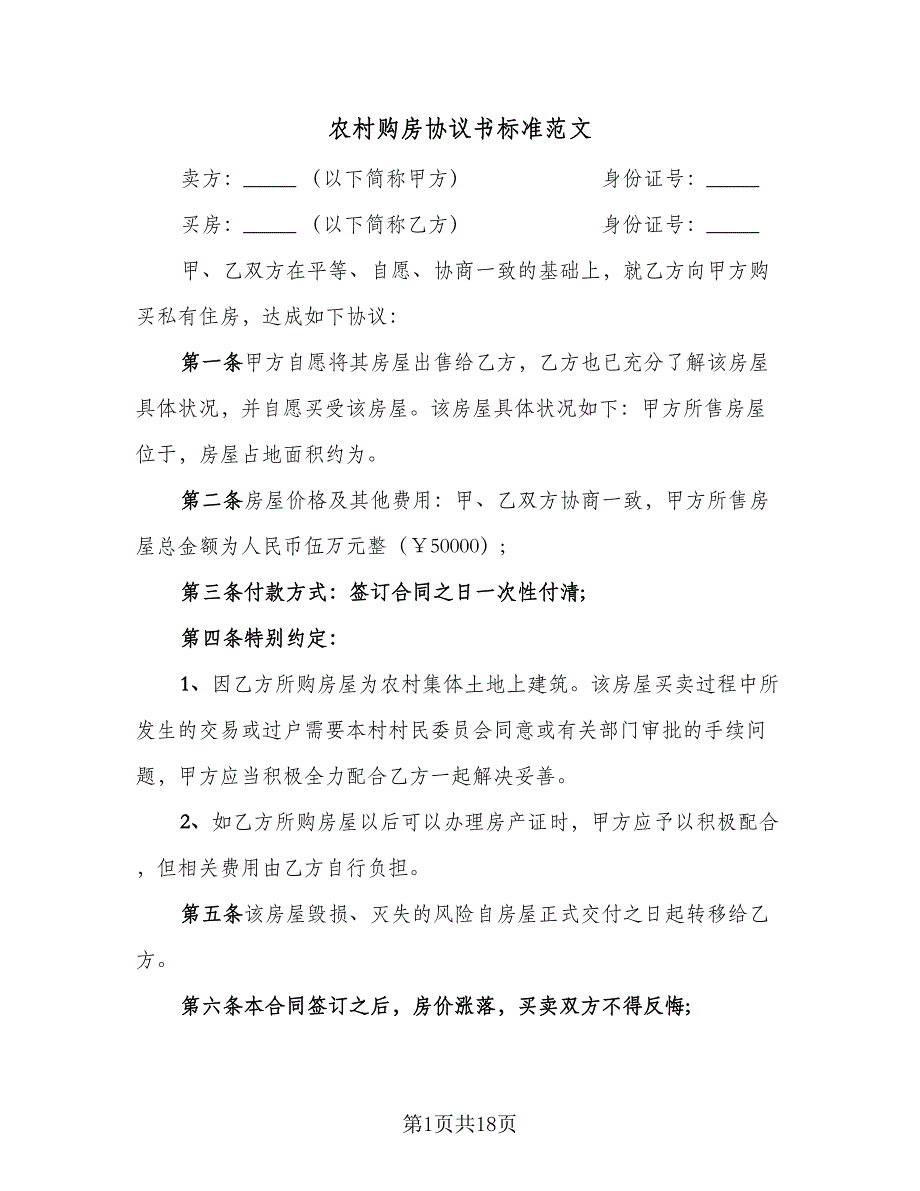 农村购房协议书标准范文
卖方：_____（以下简称甲方） 身份证号：_____
买房：_____（以下简称乙方） 身份证号：_____
甲、乙双方在平等、自愿、协商一致的基础上，就乙方向甲方购
买私有住房，达成如下协议：
第一条甲方自愿将其房屋出售给乙方，乙方也已充分了解该房屋
具体状况，并自愿买受该房屋。该房屋具体状况如下：甲方所售房屋
位于，房屋占地面积约为。
第二条房屋价格及其他费用：甲、乙双方协商一致，甲方所售房
屋总金额为人民币伍万元整（￥50000）；
第三条付款方式：签订合同之日一次性付清；
第四条特别约定：
1、因乙方所购房屋为农村集体土地上建筑。该房屋买卖过程中所
发生的交易或过户需要本村村民委员会同意或有关部门审批的手续问
题，甲方应当积极全力配合乙方一起解决妥善。
2、如乙方所购房屋以后可以办理房产证时，甲方应予以积极配合
，但相关费用由乙方自行负担。
第五条该房屋毁损、灭失的风险自房屋正式交付之日起转移给乙
方。
第六条本合同签订之后，房价涨落，买卖双方不得反悔；
第1页共18页